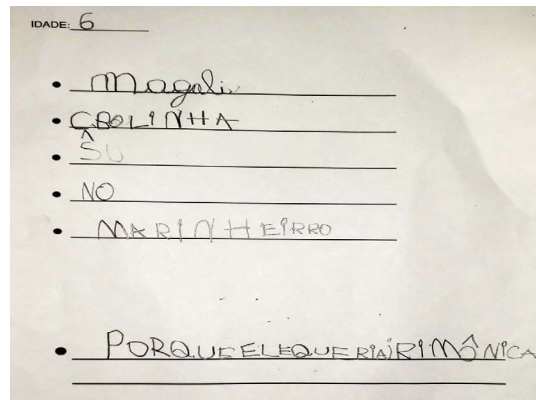 IDADE: 6
• Magali
• CBOLINHA
• SU
• NO
• MARINHEIRRO
• PORQUE ELE QUERIA IRI MÔNICA